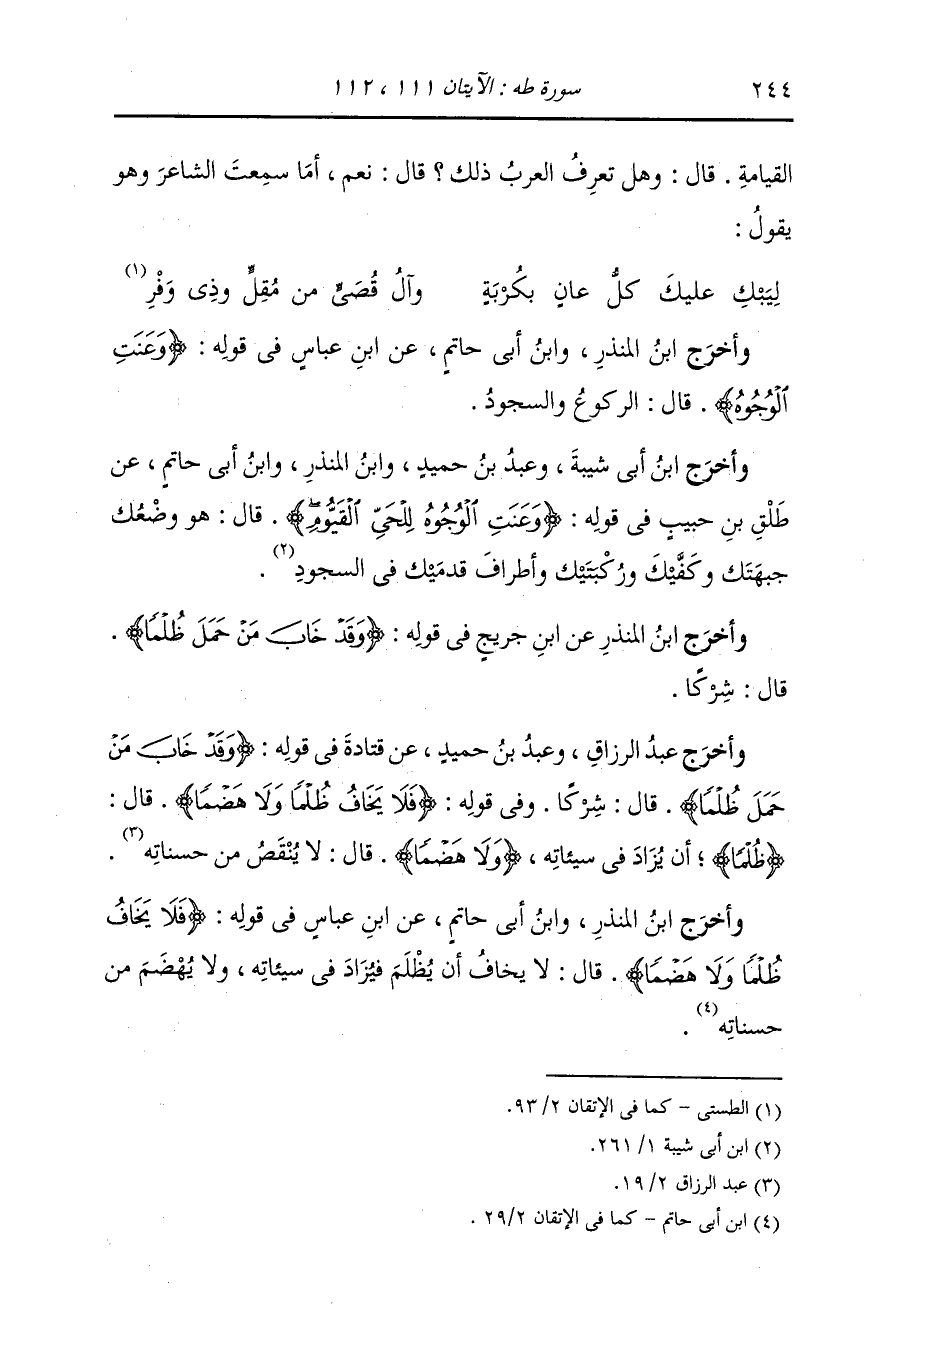 ٢٤٤ سورة طه : الآيتان ١١١ ، ١١٢
القيامةِ . قال : وهل تعرِفُ العربُ ذلك ؟ قال : نعم ، أمَا سمِعتَ الشاعرَ وهو
يقولُ :
لِيَبْكِ عليكَ كلُّ عانٍ بكُرْبَةٍ وآلُ قُصَىٍّ من مُقِلٍّ وذِى وَفْرِ(١)
وأخرَج ابنُ المنذرِ ، وابنُ أبى حاتمٍ ، عن ابنِ عباسٍ فى قولِه : ﴿وَعَنَتِ
ٱلْوُجُوهُ﴾ . قال : الركوعُ والسجودُ .
وأخرَج ابنُ أبى شيبةَ ، وعبدُ بنُ حميدٍ ، وابنُ المنذرِ ، وابنُ أبى حاتمٍ ، عن
طَلْقِ بنِ حبيبٍ فى قولِه : ﴿وَعَنَتِ ٱلْوُجُوهُ لِلْحَىِّ ٱلْقَيُّومِۖ﴾ . قال : هو وضْعُك
جبهَتَك وكَفَّيْكَ ورُكْبَتَيْك وأطرافَ قدمَيْك فى السجودِ(٢) .
وأخرَج ابنُ المنذرِ عن ابنِ جريجٍ فى قولِه : ﴿وَقَدْ خَابَ مَنْ حَمَلَ ظُلْمًا﴾ .
قال : شِرْكًا .
وأخرَج عبدُ الرزاقِ ، وعبدُ بنُ حميدٍ ، عن قتادةَ فى قولِه : ﴿وَقَدْ خَابَ مَنْ
حَمَلَ ظُلْمًا﴾ . قال : شِرْكًا . وفى قولِه : ﴿فَلَا يَخَافُ ظُلْمًا وَلَا هَضْمًا﴾ . قال :
﴿ظُلْمًا﴾ ؛ أن يُزَادَ فى سيئاتِه ، ﴿وَلَا هَضْمًا﴾ . قال : لا يُنْقَصُ من حسناتِه(٣) .
وأخرَج ابنُ المنذرِ ، وابنُ أبى حاتمٍ ، عن ابنِ عباسٍ فى قولِه : ﴿فَلَا يَخَافُ
ظُلْمًا وَلَا هَضْمًا﴾ . قال : لا يخافُ أن يُظْلَمَ فيُزَادَ فى سيئاتِه ، ولا يُهْضَمَ من
حسناتِه(٤) .
(١) الطستى – كما فى الإتقان ٢/ ٩٣.
(٢) ابن أبى شيبة ١/ ٢٦١.
(٣) عبد الرزاق ٢/ ١٩.
(٤) ابن أبى حاتم – كما فى الإتقان ٢/ ٢٩ .